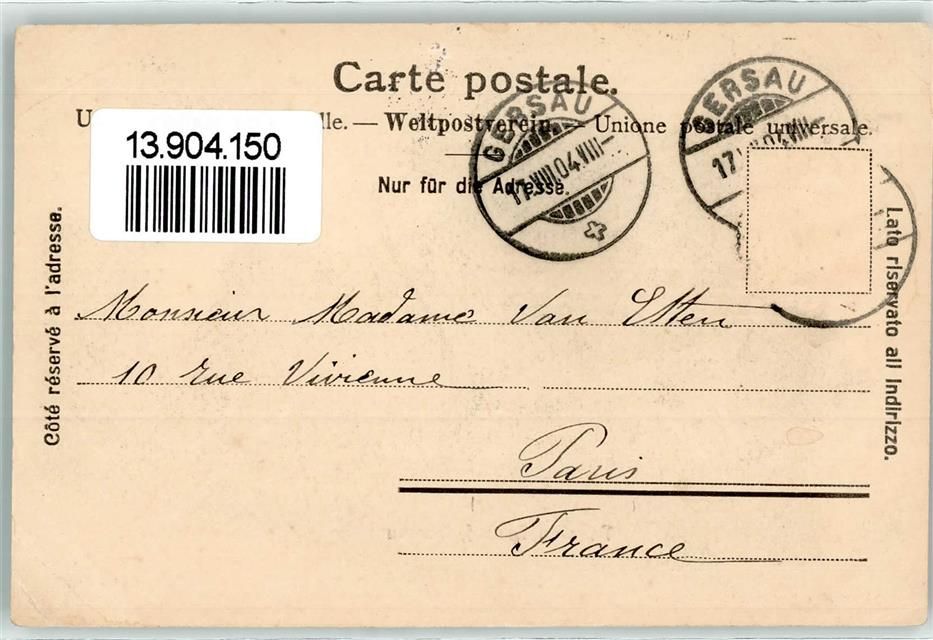 Carte postale.
13.904.150
lle. — Weltpostverein. — Unione postale universale.
Nur für die Adresse.
GERSAU
17.VIII.04.VIII—
GERSAU
17.
04.VIII—
Côté réservé à l'adresse.
Lato riservato all indirizzo.
Monsieur Madame Van Etten
10 rue Vivienne
Paris
France